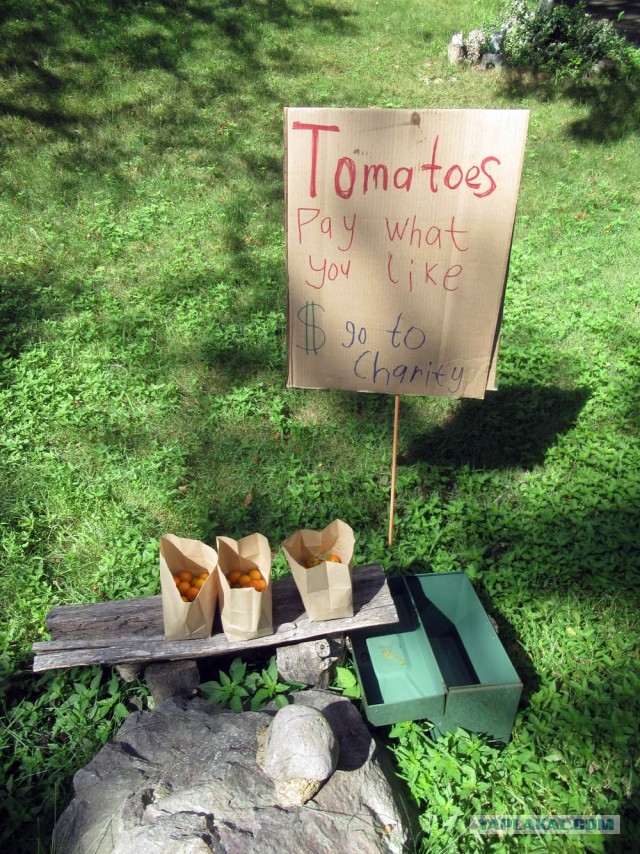 Tomatoes
Pay what
you like
$ go to
Charity
YAPLAKAL.COM